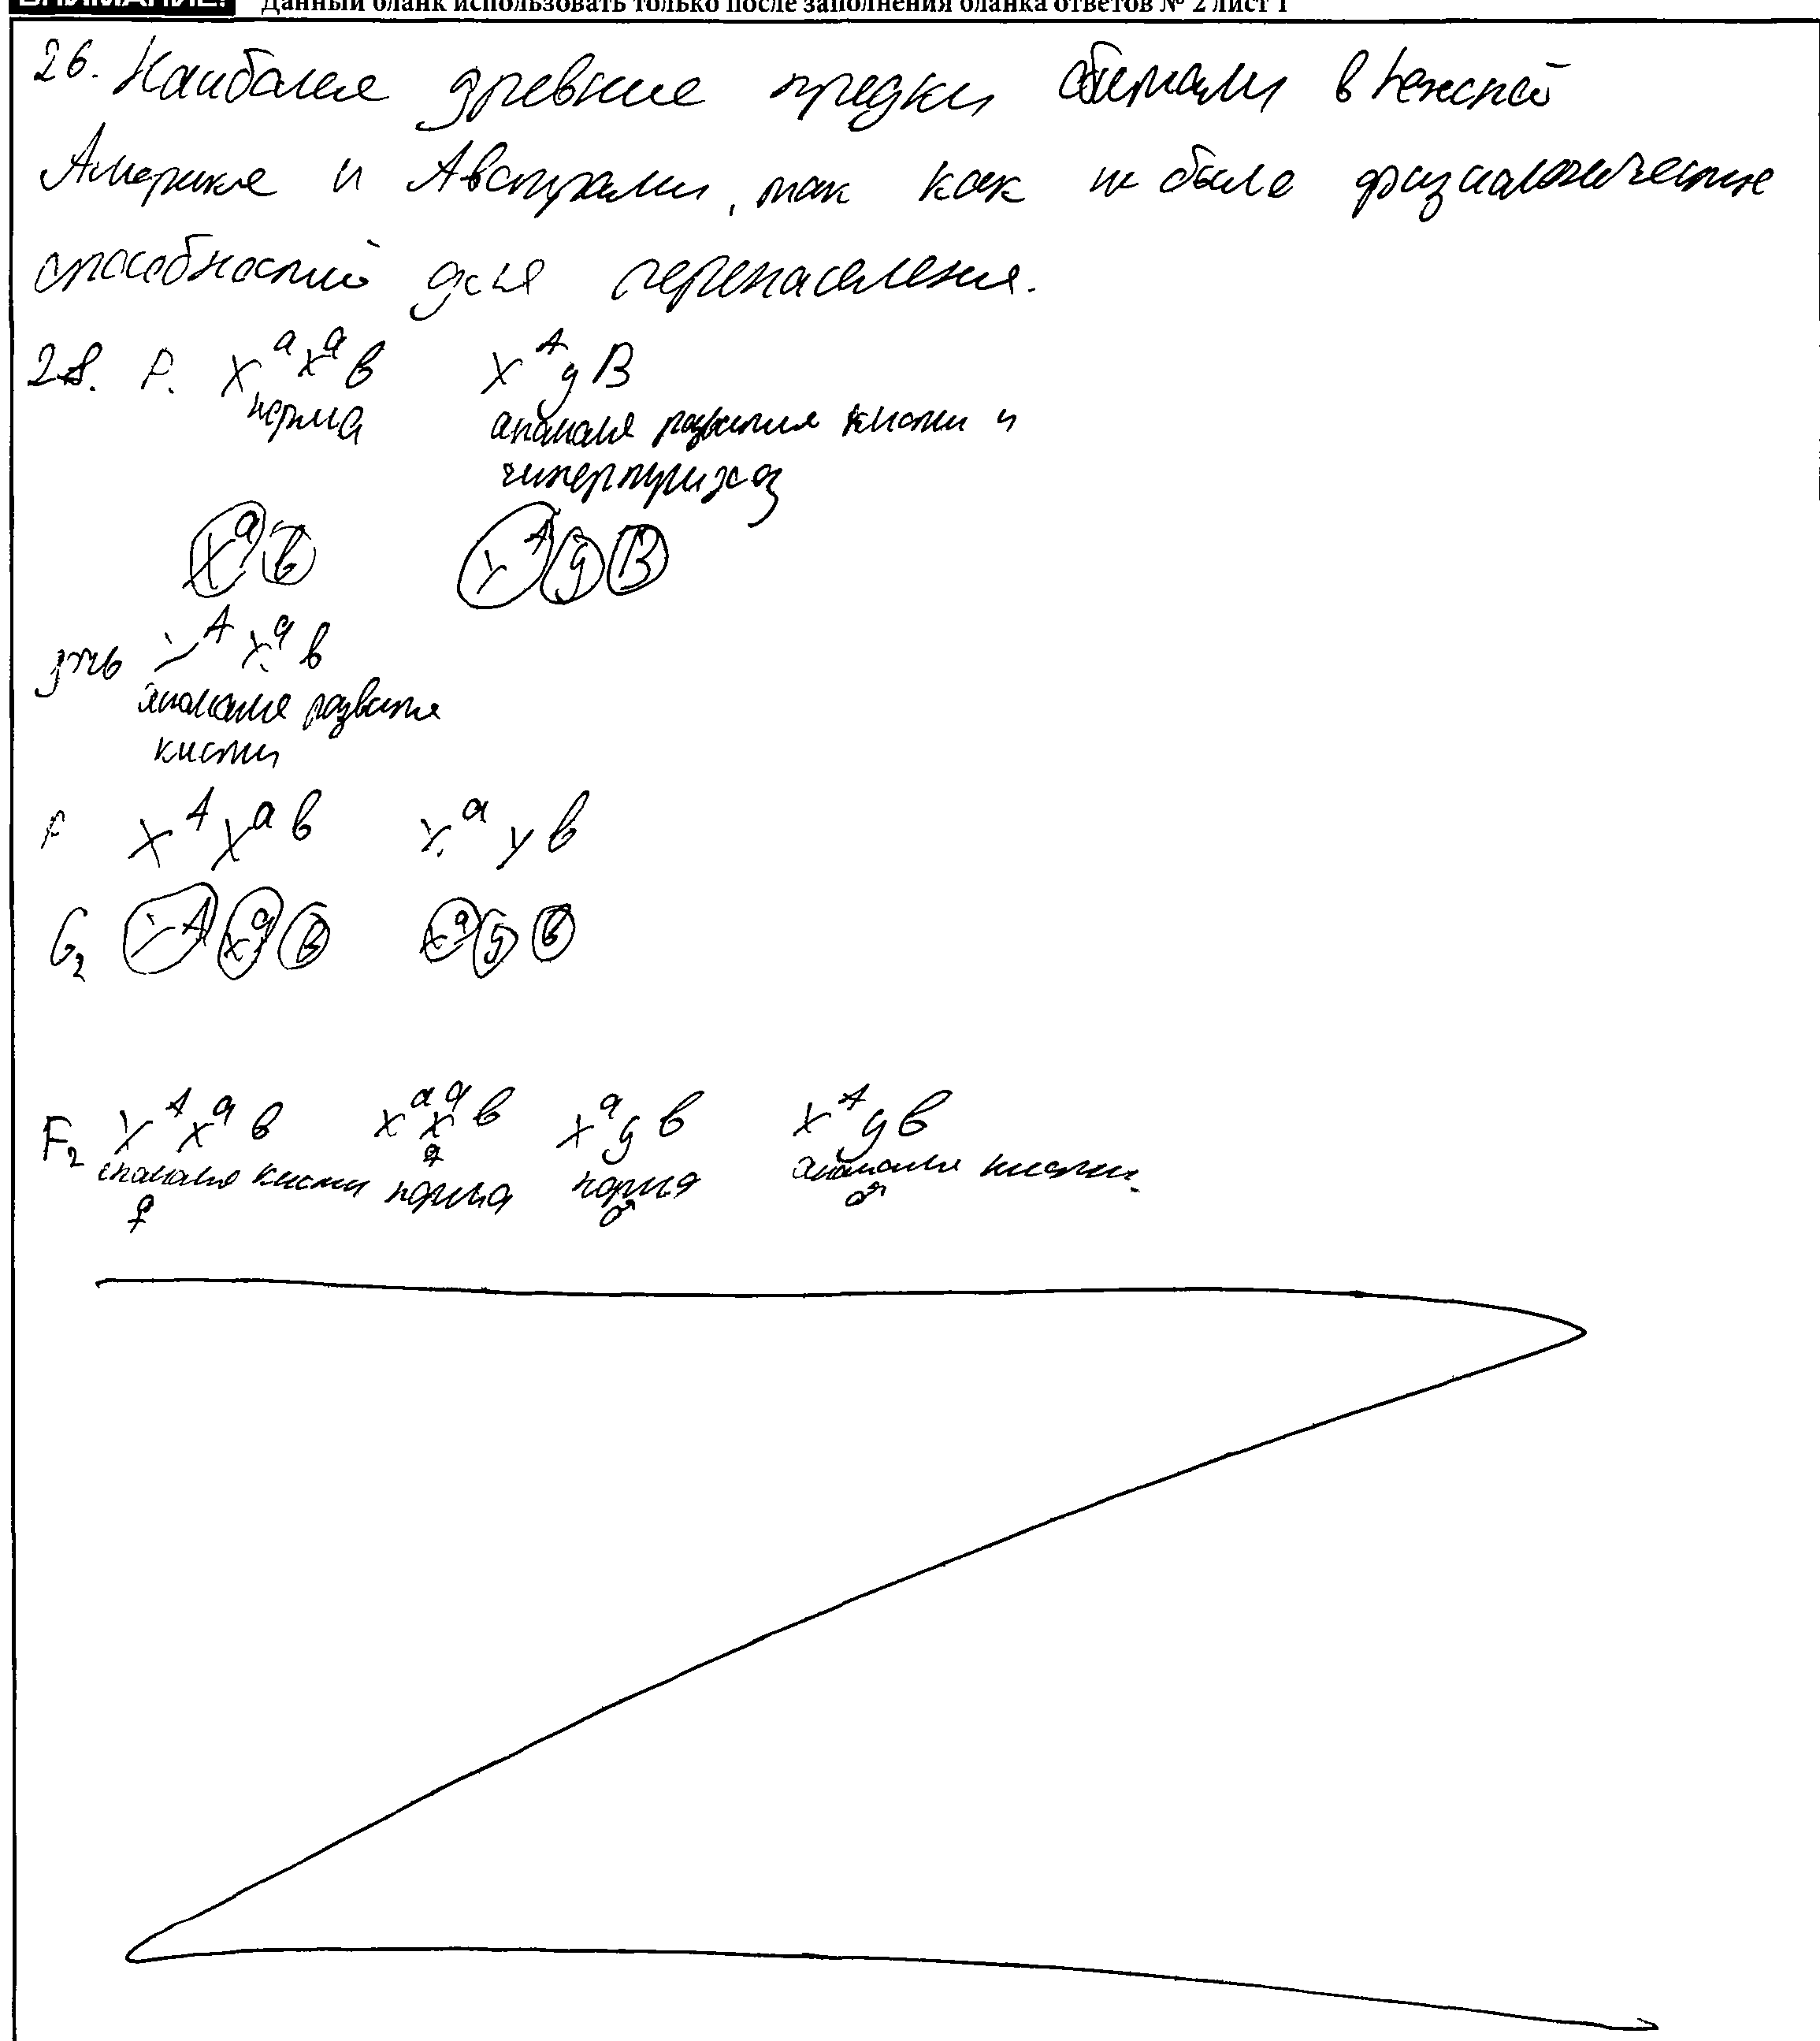 ВНИМАНИЕ! Данный бланк использовать только после заполнения бланка ответов № 2 лист 1
26. Наиболее древние предки обитали в Южной
Америке и Австралии, так как не было физиологических
способностей для перенаселения.
28. P. XᵃXᵃв XᴬyB
норма аномалия развития кисти и
гипертрихоз
Xᵃ в Xᴬ y B
дочь XᴬXᵃв
аномалия развития
кисти
P XᴬXᵃв Xᵃyв
G₂ Xᴬ Xᵃ в Xᵃ y в
F₂ XᴬXᵃв XᵃXᵃв Xᵃyв Xᴬyв
аномалия кисти норма норма аномалия кисти.
♀ ♀ ♂ ♂